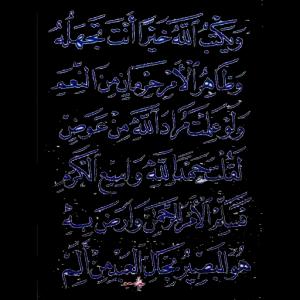 ويكتب الله خيرا أنت تجهله
وظاهر الأمر حرمان من النعم
ولو علمت مراد الله من عوض
لقلت حمدا لله واسع الكرم
فسلم الأمر للرحمن وارض به
هو البصير بحال العبد من ألم